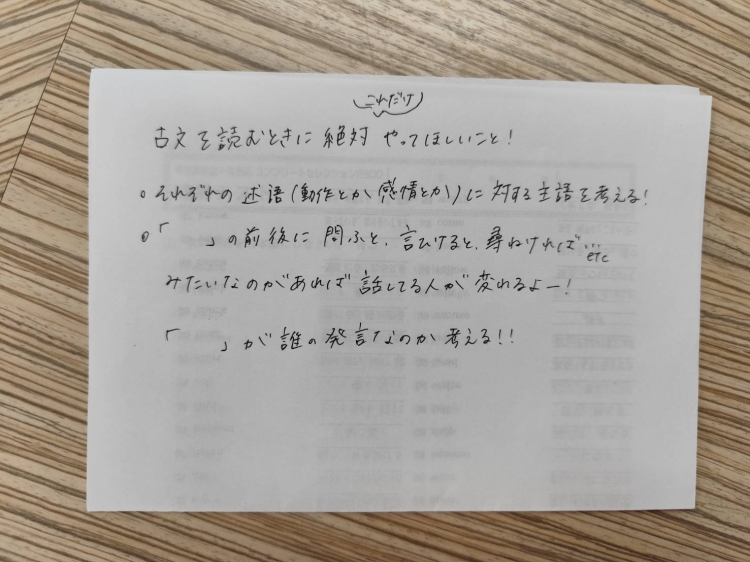 これだけ
古文を読むときに絶対やってほしいこと！
。それぞれの述語(動作とか感情とか)に対する主語を考える！
。「　　」の前後に問ふと、言ひけると、尋ねければ…etc
みたいなのがあれば話してる人が変わるよー！
「　　」が誰の発言なのか考える!!